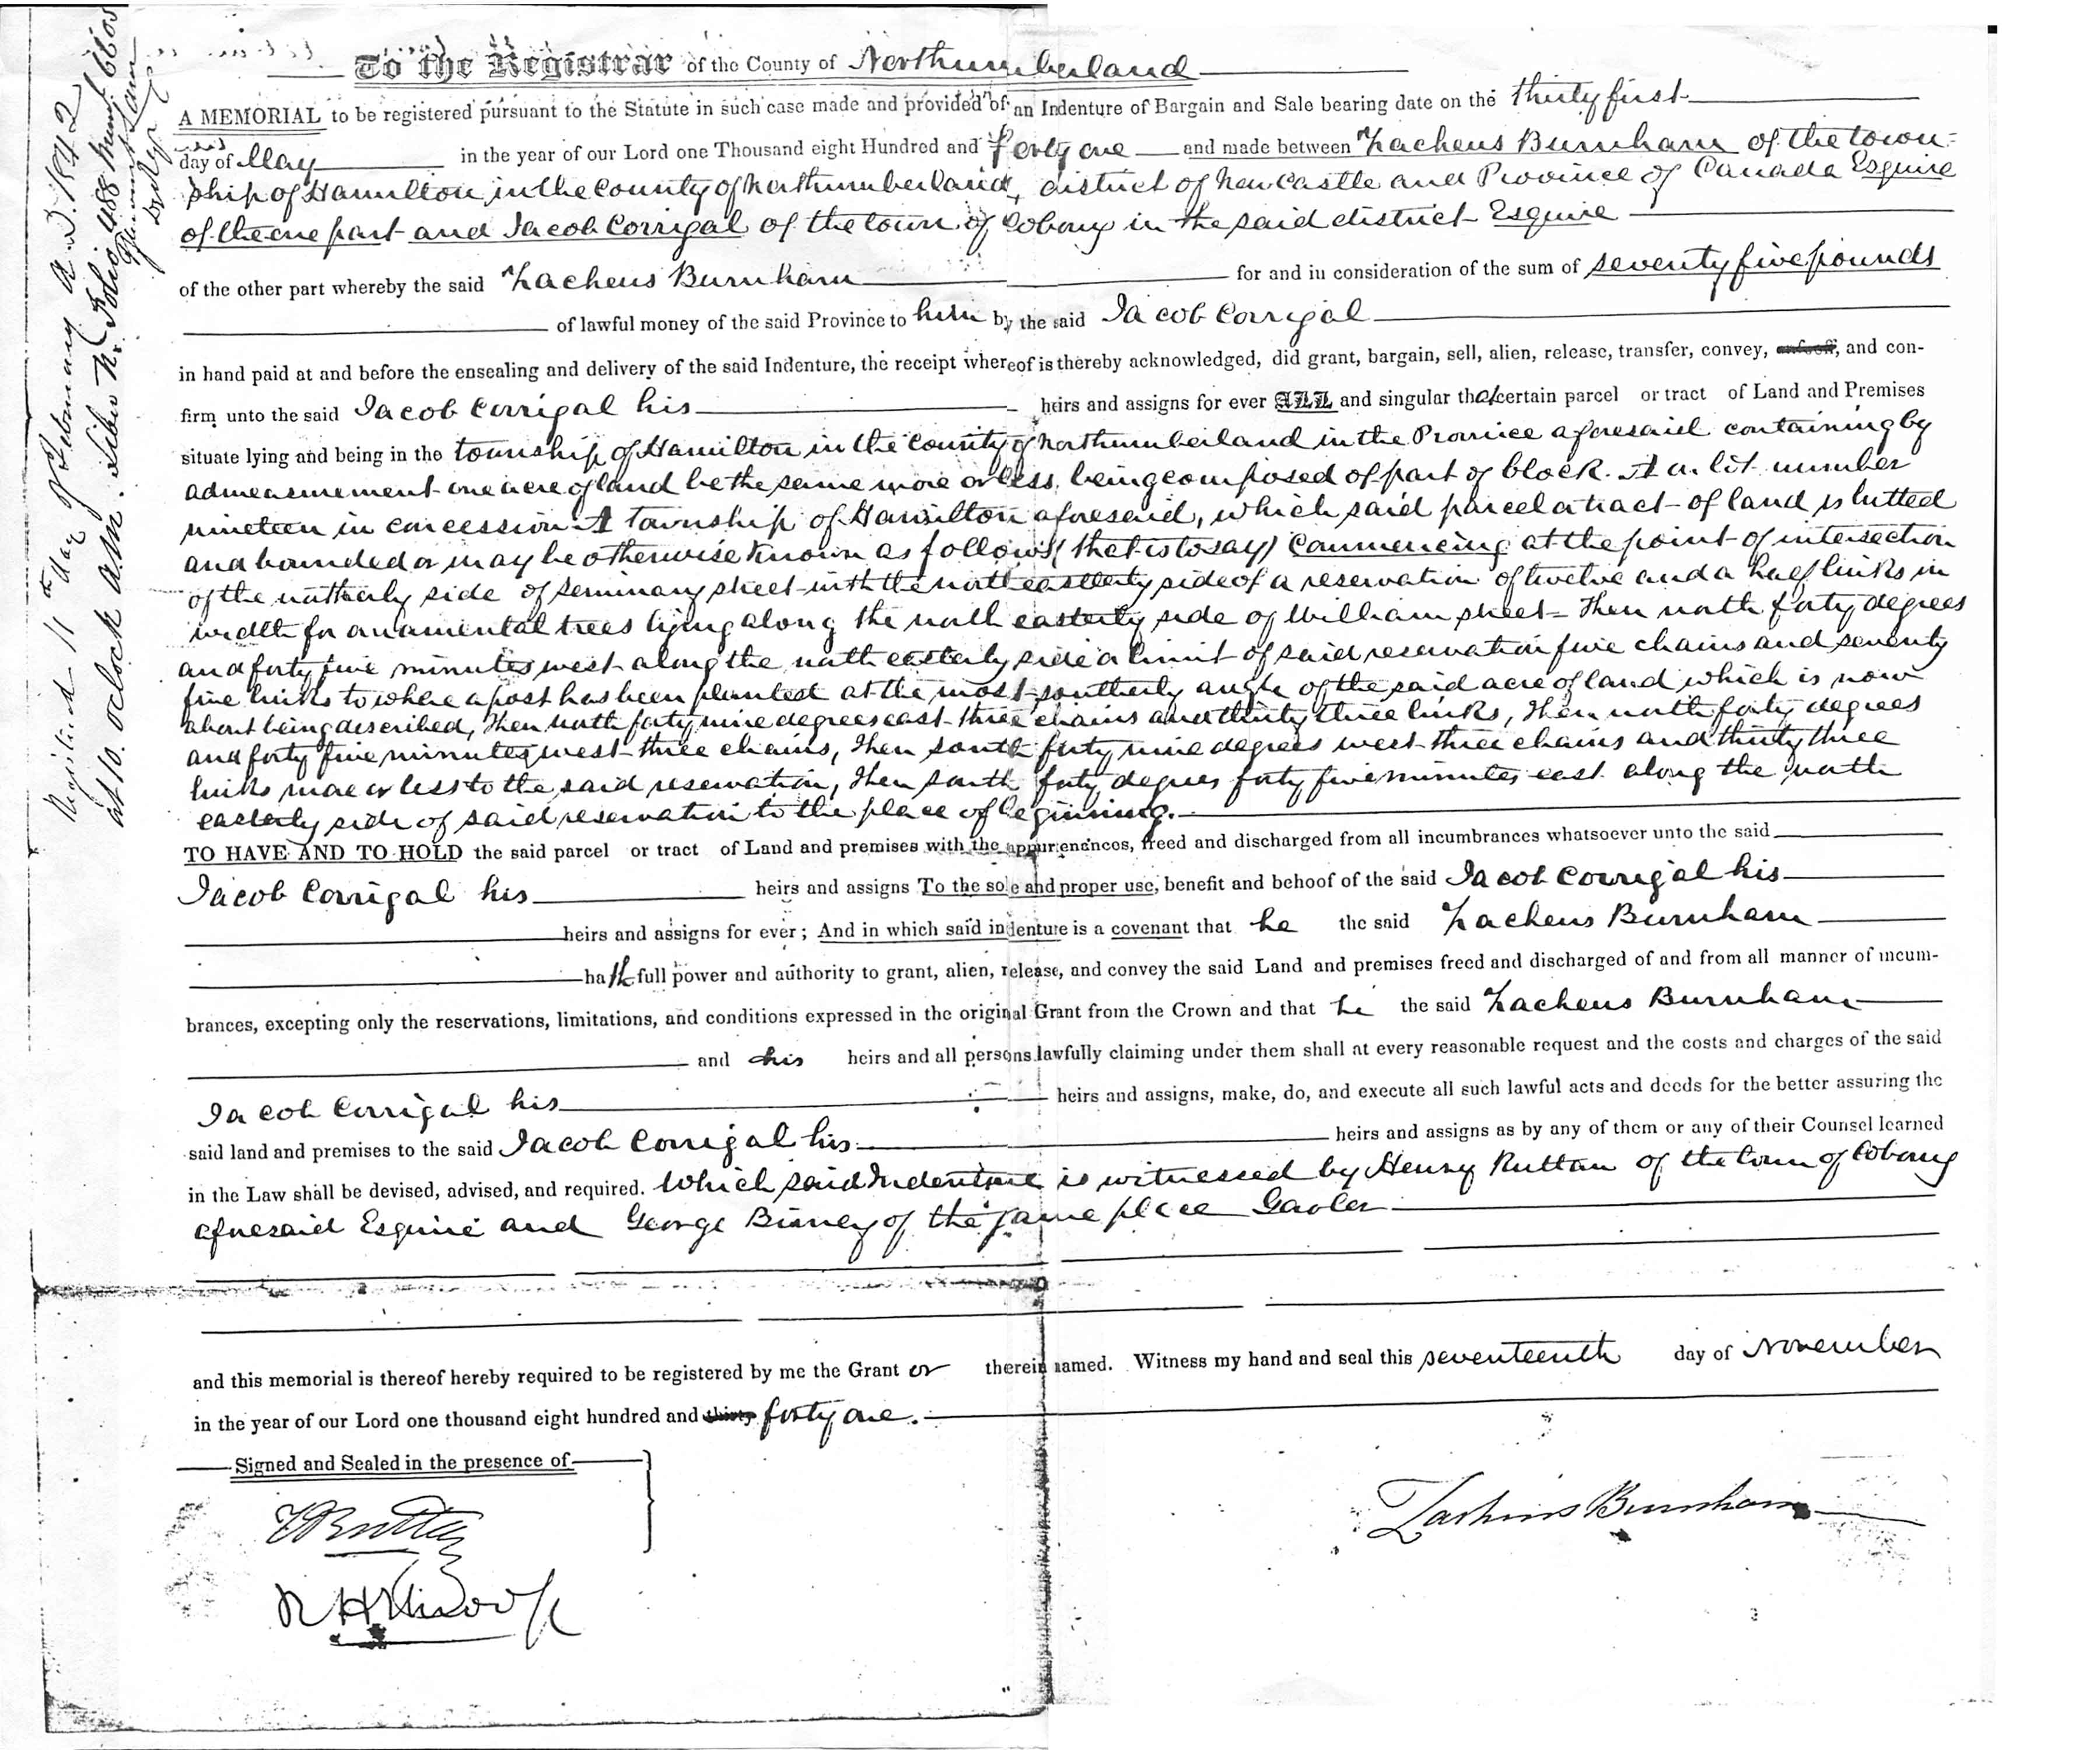 Registered 11th day of February A.D. 1842
at 10. oclock A.M. Liber N. Folio 488 Numb. 6605
To the Registrar of the County of Northumberland
A MEMORIAL to be registered pursuant to the Statute in such case made and provided of an Indenture of Bargain and Sale bearing date on the thirty first
day of May in the year of our Lord one Thousand eight Hundred and forty one and made between Zacheus Burnham of the town-
ship of Hamilton in the County of Northumberland, district of New Castle and Province of Canada Esquire
of the one part and Jacob Corrigal of the town of Cobourg in the said district Esquire
of the other part whereby the said Zacheus Burnham for and in consideration of the sum of seventy five pounds
of lawful money of the said Province to him by the said Jacob Corrigal
in hand paid at and before the ensealing and delivery of the said Indenture, the receipt whereof is thereby acknowledged, did grant, bargain, sell, alien, release, transfer, convey, enfeoff, and con-
firm unto the said Jacob Corrigal his heirs and assigns for ever ALL and singular that certain parcel or tract of Land and Premises
situate lying and being in the township of Hamilton in the County of Northumberland in the Province aforesaid containing by
admeasurement one acre of land be the same more or less, being composed of part of block A in lot number
nineteen in concession A township of Hamilton aforesaid, which said parcel or tract of land is butted
and bounded or may be otherwise known as follows (that is to say) Commencing at the point of intersection
of the northerly side of Seminary street with the north easterly side of a reservation of twelve and a half links in
width for ornamental trees lying along the north easterly side of William street - Then north forty degrees
and forty five minutes west along the north easterly side or limit of said reservation five chains and seventy
five links to where a post has been planted at the most southerly angle of the said acre of land which is now
about being described, Then north forty nine degrees east three chains and thirty three links, Then north forty degrees
and forty five minutes west three chains, Then south forty nine degrees west three chains and thirty three
links more or less to the said reservation, Then south forty degrees forty five minutes east along the north
easterly side of said reservation to the place of beginning.
TO HAVE AND TO HOLD the said parcel or tract of Land and premises with the appurtenences, freed and discharged from all incumbrances whatsoever unto the said
Jacob Corrigal his heirs and assigns To the sole and proper use, benefit and behoof of the said Jacob Corrigal his
heirs and assigns for ever; And in which said indenture is a covenant that he the said Zacheus Burnham
hath full power and authority to grant, alien, release, and convey the said Land and premises freed and discharged of and from all manner of incum-
brances, excepting only the reservations, limitations, and conditions expressed in the original Grant from the Crown and that he the said Zacheus Burnham
and his heirs and all persons lawfully claiming under them shall at every reasonable request and the costs and charges of the said
Jacob Corrigal his heirs and assigns, make, do, and execute all such lawful acts and deeds for the better assuring the
said land and premises to the said Jacob Corrigal his heirs and assigns as by any of them or any of their Counsel learned
in the Law shall be devised, advised, and required. Which said Indenture is witnessed by Henry Ruttan of the town of Cobourg
aforesaid Esquire and George Binney of the same place Gaoler
and this memorial is thereof hereby required to be registered by me the Grantor therein named. Witness my hand and seal this seventeenth day of November
in the year of our Lord one thousand eight hundred and thirty forty one.
Signed and Sealed in the presence of
Zacheus Burnham